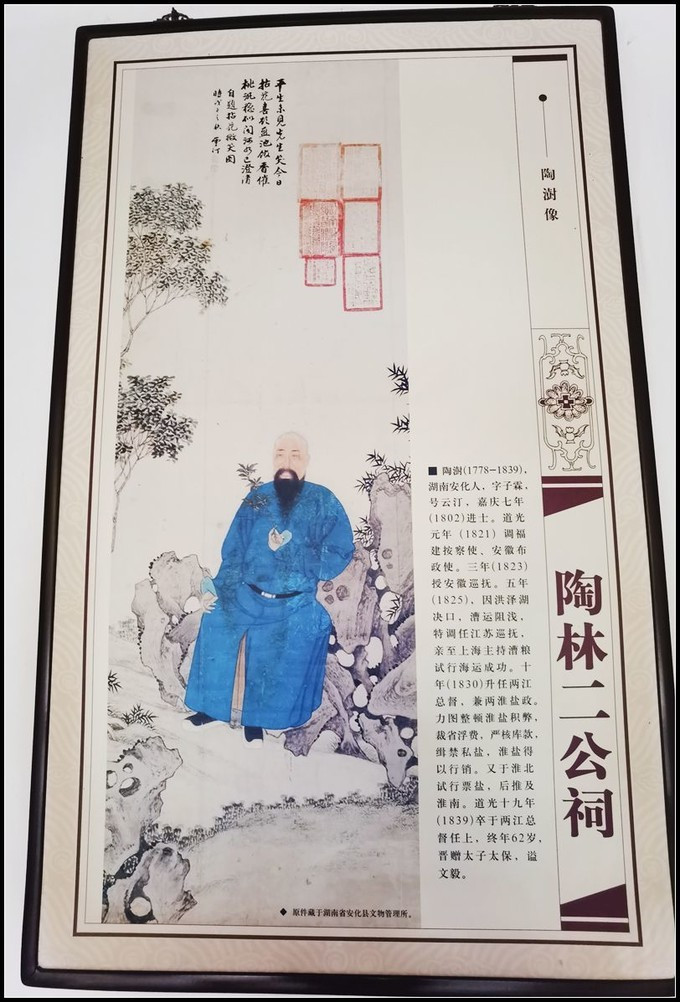 平生未見先生笑今日
拈花喜欲
自題拈花微笑圖
陶澍像
■ 陶澍(1778-1839),
湖南安化人，字子霖，
号云汀，嘉庆七年
(1802)进士。道光
元年 (1821) 调福
建按察使、安徽布
政使。三年(1823)
授安徽巡抚。五年
(1825)，因洪泽湖
决口，漕运阻浅，
特调任江苏巡抚，
亲至上海主持漕粮
试行海运成功。十
年(1830)升任两江
总督，兼两淮盐政。
力图整顿淮盐积弊，
裁省浮费，严核库款，
缉禁私盐，淮盐得
以行销。又于淮北
试行票盐，后推及
淮南。道光十九年
(1839)卒于两江总
督任上，终年62岁，
晋赠太子太保，谥
文毅。
陶林二公祠
◆ 原件藏于湖南省安化县文物管理所。